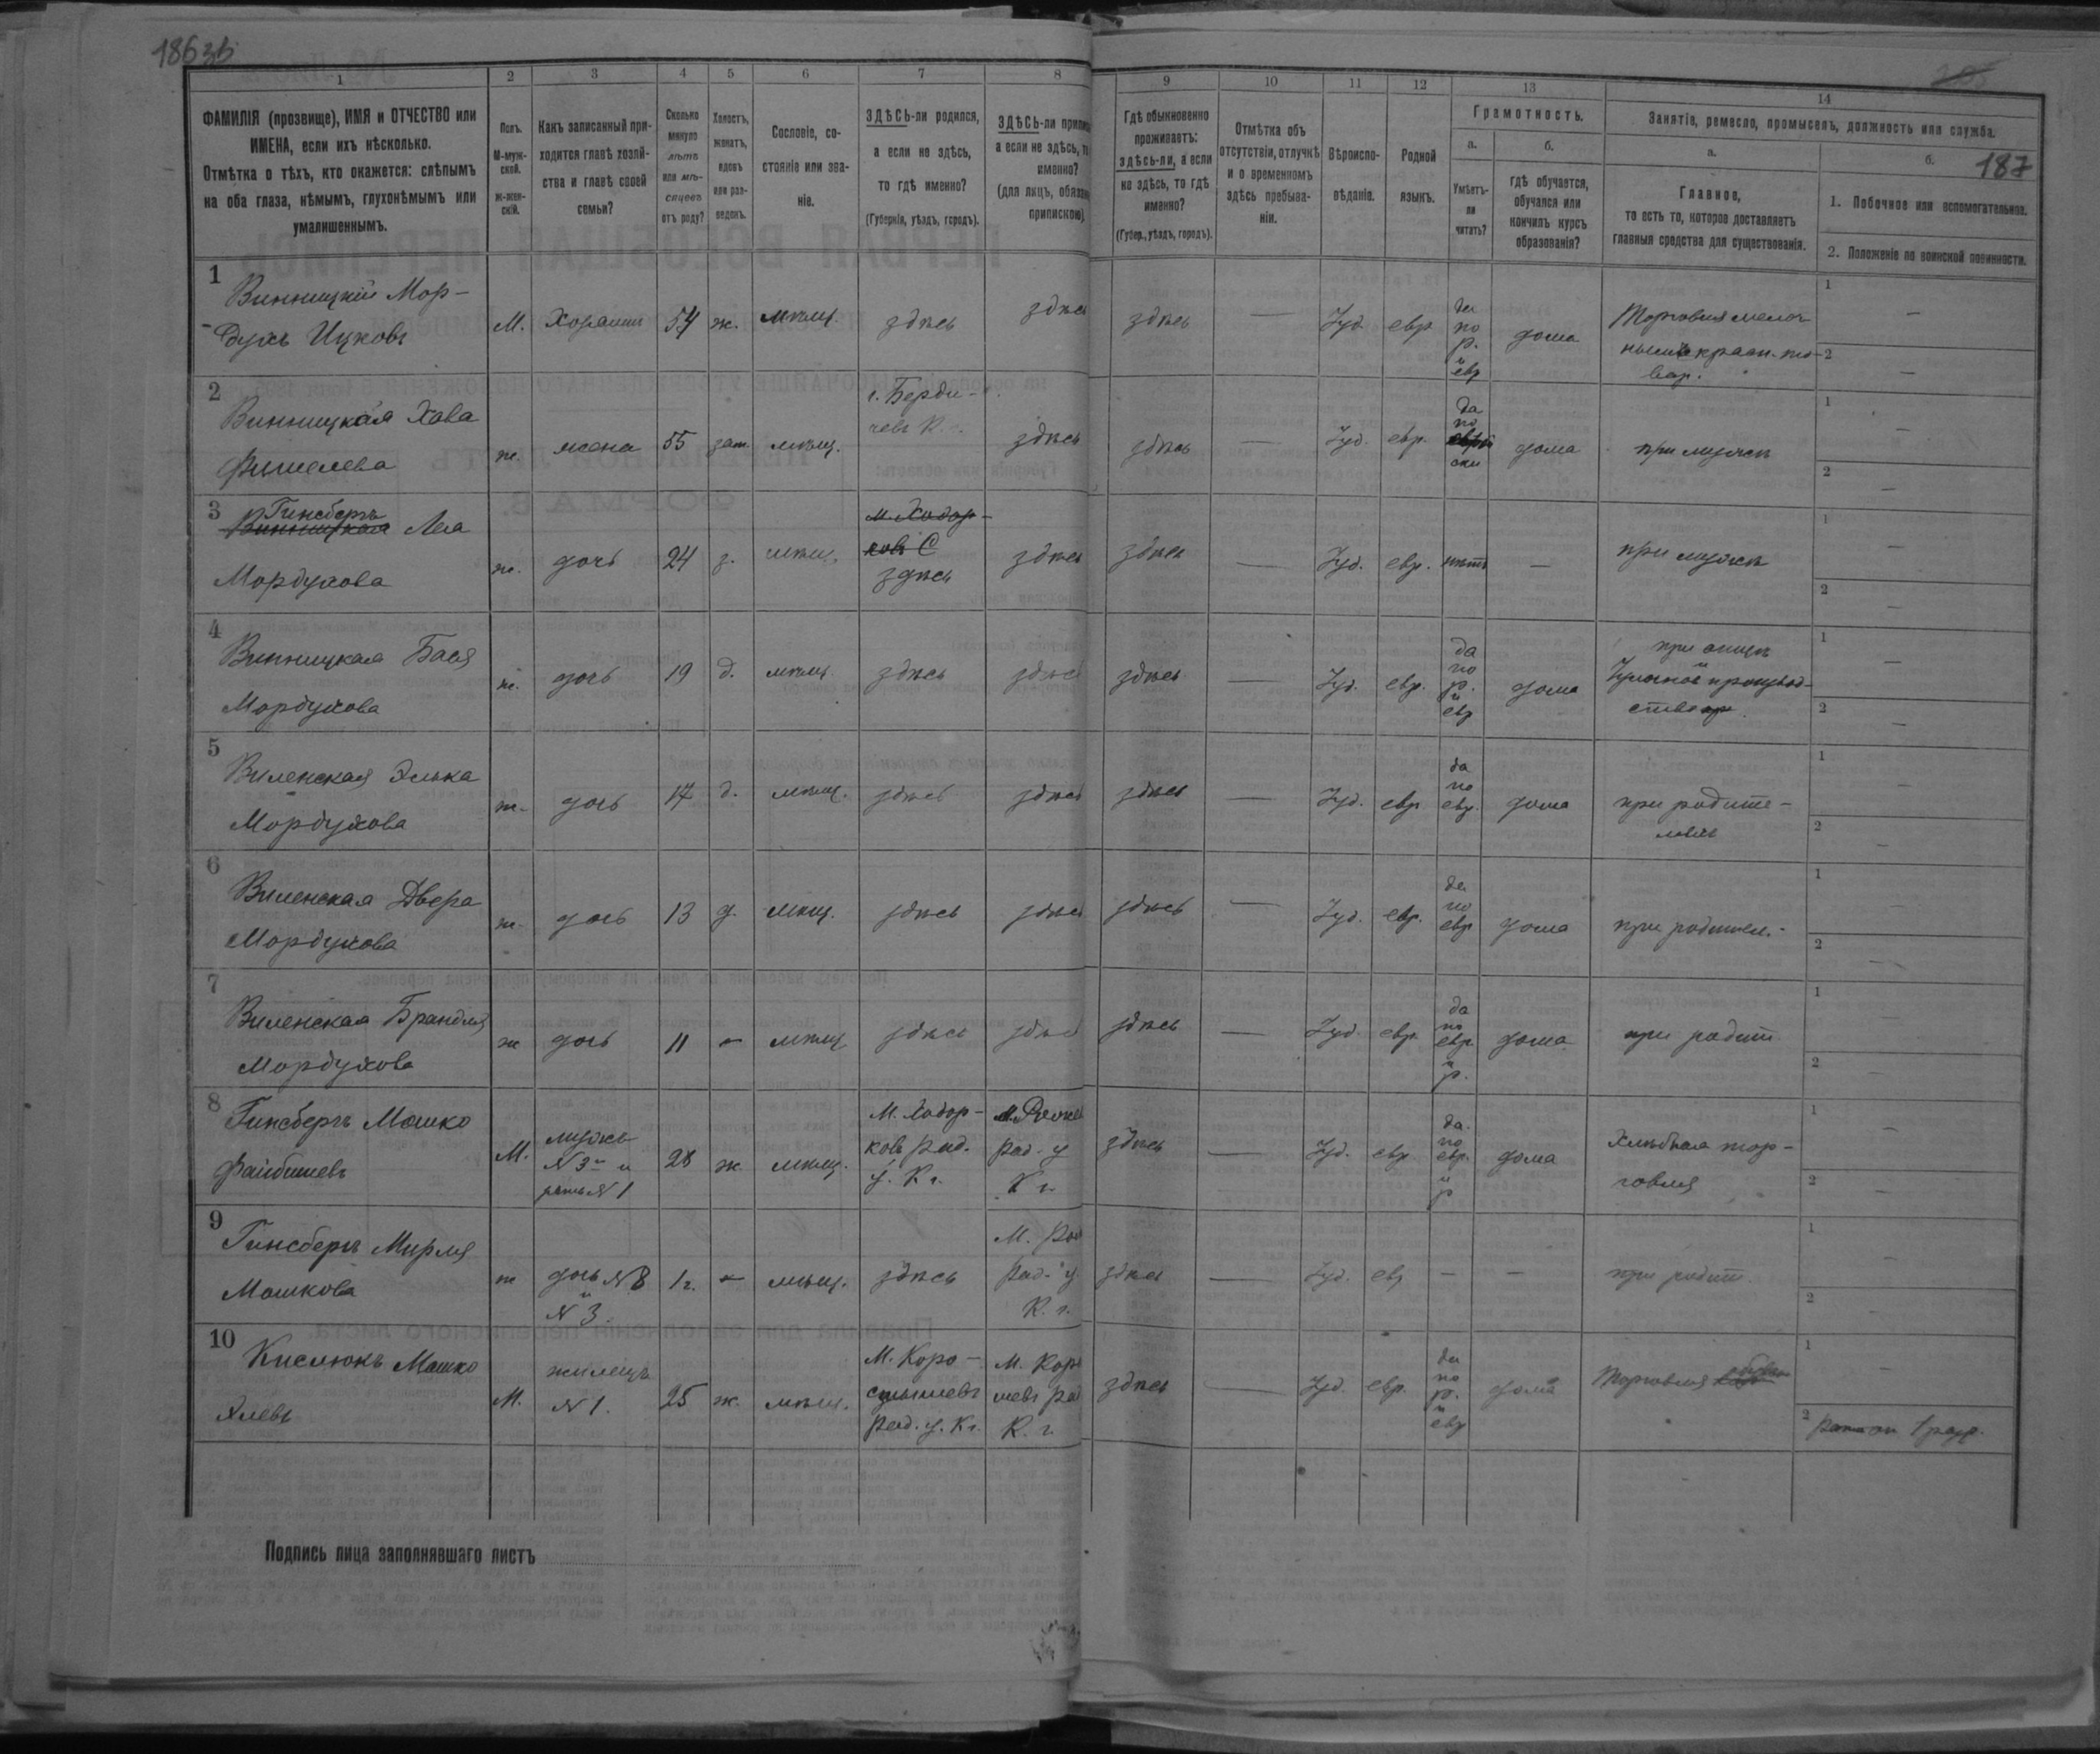 186зв
187
1 2 3 4 5 6 7 8 9 10 11 12 13 14
ФАМИЛІЯ (прозвище), ИМЯ и ОТЧЕСТВО или
ИМЕНА, если ихъ нѣсколько.
Отмѣтка о тѣхъ, кто окажется: слѣпымъ
на оба глаза, нѣмымъ, глухонѣмымъ или
умалишеннымъ.
Полъ.
М-муж-
ской.
Ж-жен-
скій.
Какъ записанный при-
ходится главѣ хозяй-
ства и главѣ своей
семьи?
Сколько
минуло
лѣтъ
или мѣ-
сяцевъ
отъ роду?
Холостъ,
женатъ,
вдовъ
или раз-
веденъ.
Сословіе, со-
стояніе или зва-
ніе.
ЗДѢСЬ-ли родился,
а если не здѣсь,
то гдѣ именно?
(Губернія, уѣздъ, городъ).
ЗДѢСЬ-ли припи
а если не здѣсь, т
именно?
(для лицъ, обяза
припискою)
Гдѣ обыкновенно
проживаетъ:
здѣсь-ли, а если
не здѣсь, то гдѣ
именно?
(Губер., уѣздъ, городъ).
Отмѣтка объ
отсутствіи, отлучкѣ
и о временномъ
здѣсь пребыва-
ніи.
Вѣроиспо-
вѣданіе.
Родной
языкъ.
Грамотность.
а.
Умѣетъ-
ли
читать?
б.
гдѣ обучается,
обучался или
кончилъ курсъ
образованія?
Занятіе, ремесло, промыселъ, должность или служба.
а.
Главное,
то есть то, которое доставляетъ
главныя средства для существованія.
б.
1. Побочное или вспомогательное.
2. Положеніе по воинской повинности.
1
Винницкій Мор-
духъ Ицковъ
М. 54 ж. мѣщ. здѣсь здѣс здѣсь — Іуд. евр да по р. и евр дома Торговля мелоч
ным красн. то-
вар.
1 —
2 —
2
Винницкая Хава
Фишелева
ж. жена 55 зам. мѣщ. г. Берди-
чевъ К. г. здѣсь здѣсь — Іуд. евр. да по дома при мужѣ
1 —
2 —
3
Гинсбергъ
Винницкая Леа
Мордухова
ж. дочь 24 з. мѣщ. м. Ходор-
ковъ С
здѣсь здѣсь здѣсь — Іуд. евр. нѣтъ — при мужѣ
1 —
2 —
4
Винницкая Бася
Мордухова
ж. дочь 19 д. мѣщ. здѣсь здѣс здѣсь — Іуд. евр. да по р. и евр дома при отцѣ
1 —
2 —
5
Виленская Элька
Мордухова
ж. дочь 17 д. мѣщ. здѣсь здѣс здѣсь — Іуд. евр да по евр. дома при родите-
ляхъ
1 —
2 —
6
Виленская Двера
Мордухова
ж. дочь 13 д. мѣщ. здѣсь здѣс здѣсь — Іуд. евр. да по евр дома при родител.
1 —
2 —
7
Виленская Брандля
Мордухова
ж дочь 11 — мѣщ здѣсь здѣс здѣсь — Іуд. евр. да по евр. и р. дома при родит
1 —
2 —
8
Гинсбергъ Мошко
Файбишевъ
М. мужъ
№ 3 и
зять № 1 28 ж. мѣщ. М. Ходор-
ковъ Рад.
у. К г. Рад. у
К г. здѣсь — Іуд. евр да по евр. и р дома Хлѣбная тор-
говля
1 —
2 —
9
Гинсбергъ Мирля
Мошкова
ж дочь № 8
и
№ 3. 1 г. — мѣщ. здѣсь Рад. у
К. г. здѣсь — Іуд. евр — — при родит.
1 —
2 —
10
Кислюкъ Мошко
Хлевъ
М. жилецъ
№ 1. 25 ж. мѣщ. М. Коро-
стышевъ
Рад. у. К г. М. Кор
шевъ Рад
К. г. здѣсь — Іуд. евр. да по р. и евр дома Торговля
1 —
2
Подпись лица заполнявшаго листъ